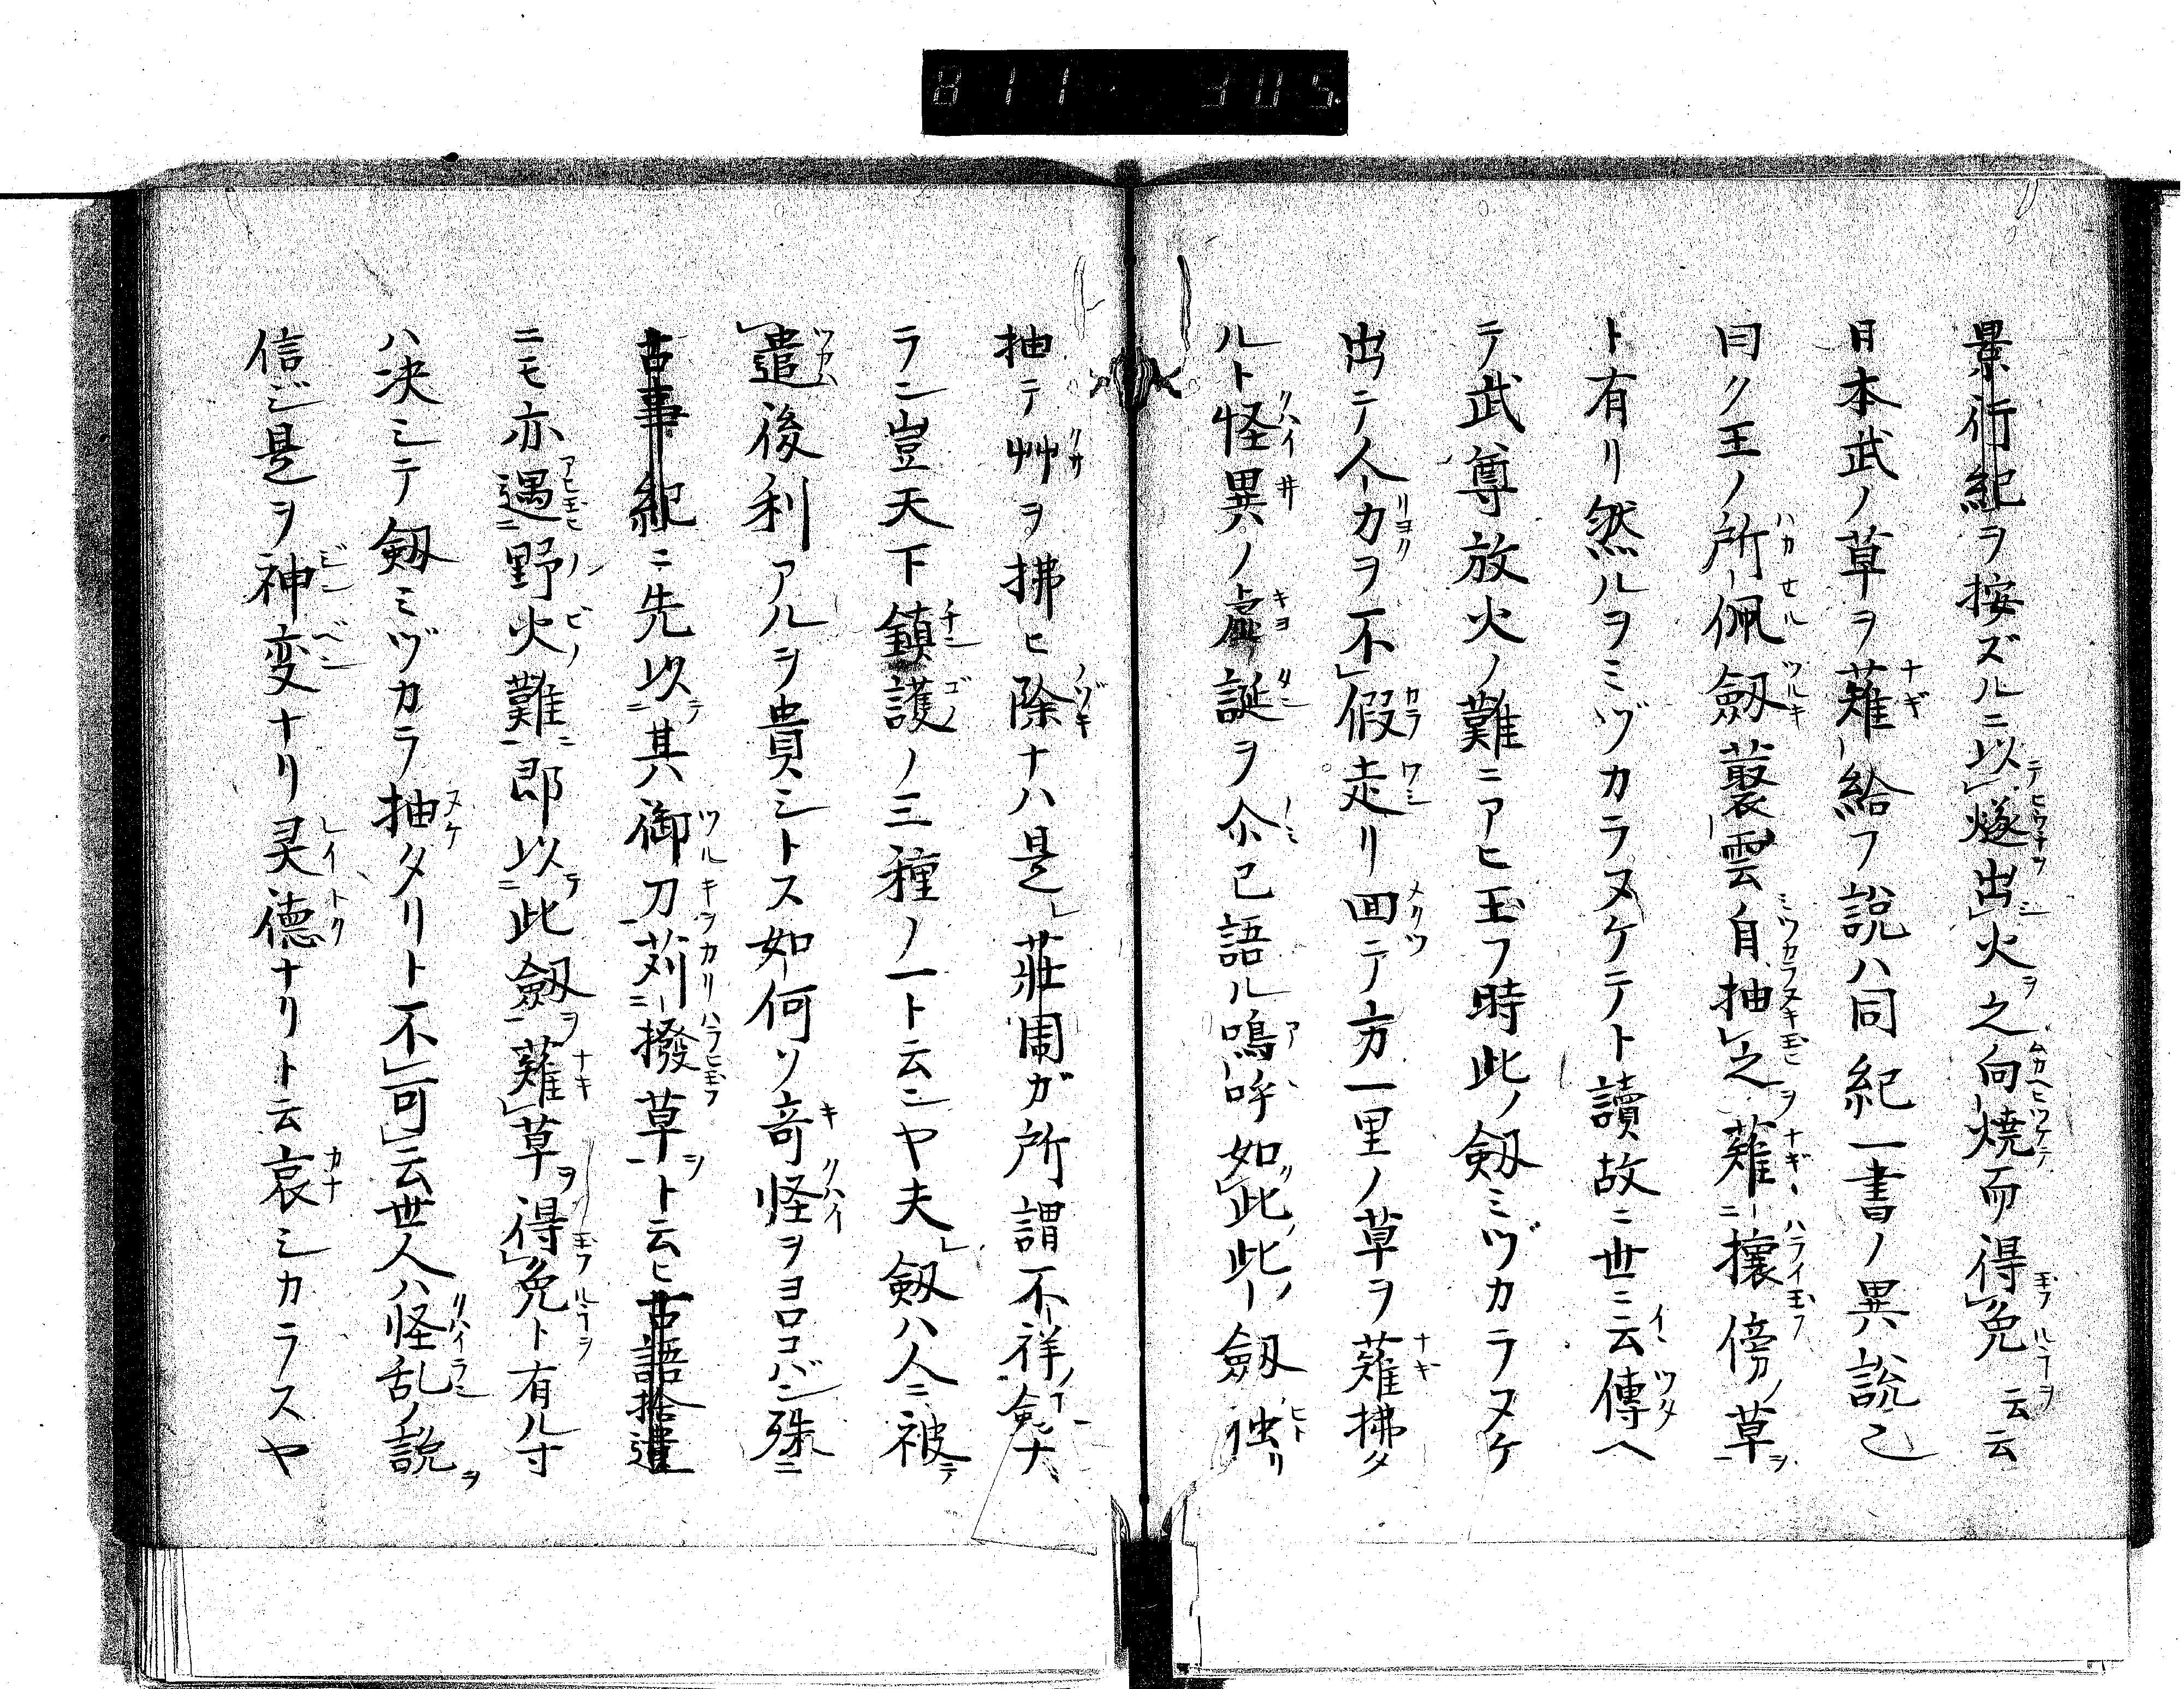 景行紀ヲ按ズルニ以燧出火之向焼而得免云云
日本武ノ草ヲ薙給フ説ハ同紀一書ノ異説ニ
曰ク王ノ所佩劔藂雲自抽之薙攘傍草
ト有リ然ルヲミヅカラヌケテト讀故ニ世ニ云傳ヘ
テ武尊放火ノ難ニアヒ玉フ時此ノ劔ミヅカラヌケ
出テ人力ヲ不假走リ回テ方一里ノ草ヲ薙拂タ
ルト怪異ノ虚誕ヲ尒已語ル鳴呼如此此劔独リ
抽テ艸ヲ拂ヒ除ナハ是荘周ガ所謂不祥剣ナ
ラン豈天下鎮護ノ三種ノ一ト云ンヤ夫劔ハ人ニ被
遣後利アルヲ貴シトス如何ソ竒怪ヲヨロコバン殊ニ
古事紀ニ先以其御刀苅撥草ト云ヒ古語拾遺
ニモ亦遇野火難即以此劔薙草得免ト有ル寸
ハ决シテ劔ミヅカラ抽タリト不可云世人ハ怪乱ノ説ヲ
信ジ是ヲ神変ナリ灵德ナリト云哀シカラスヤ